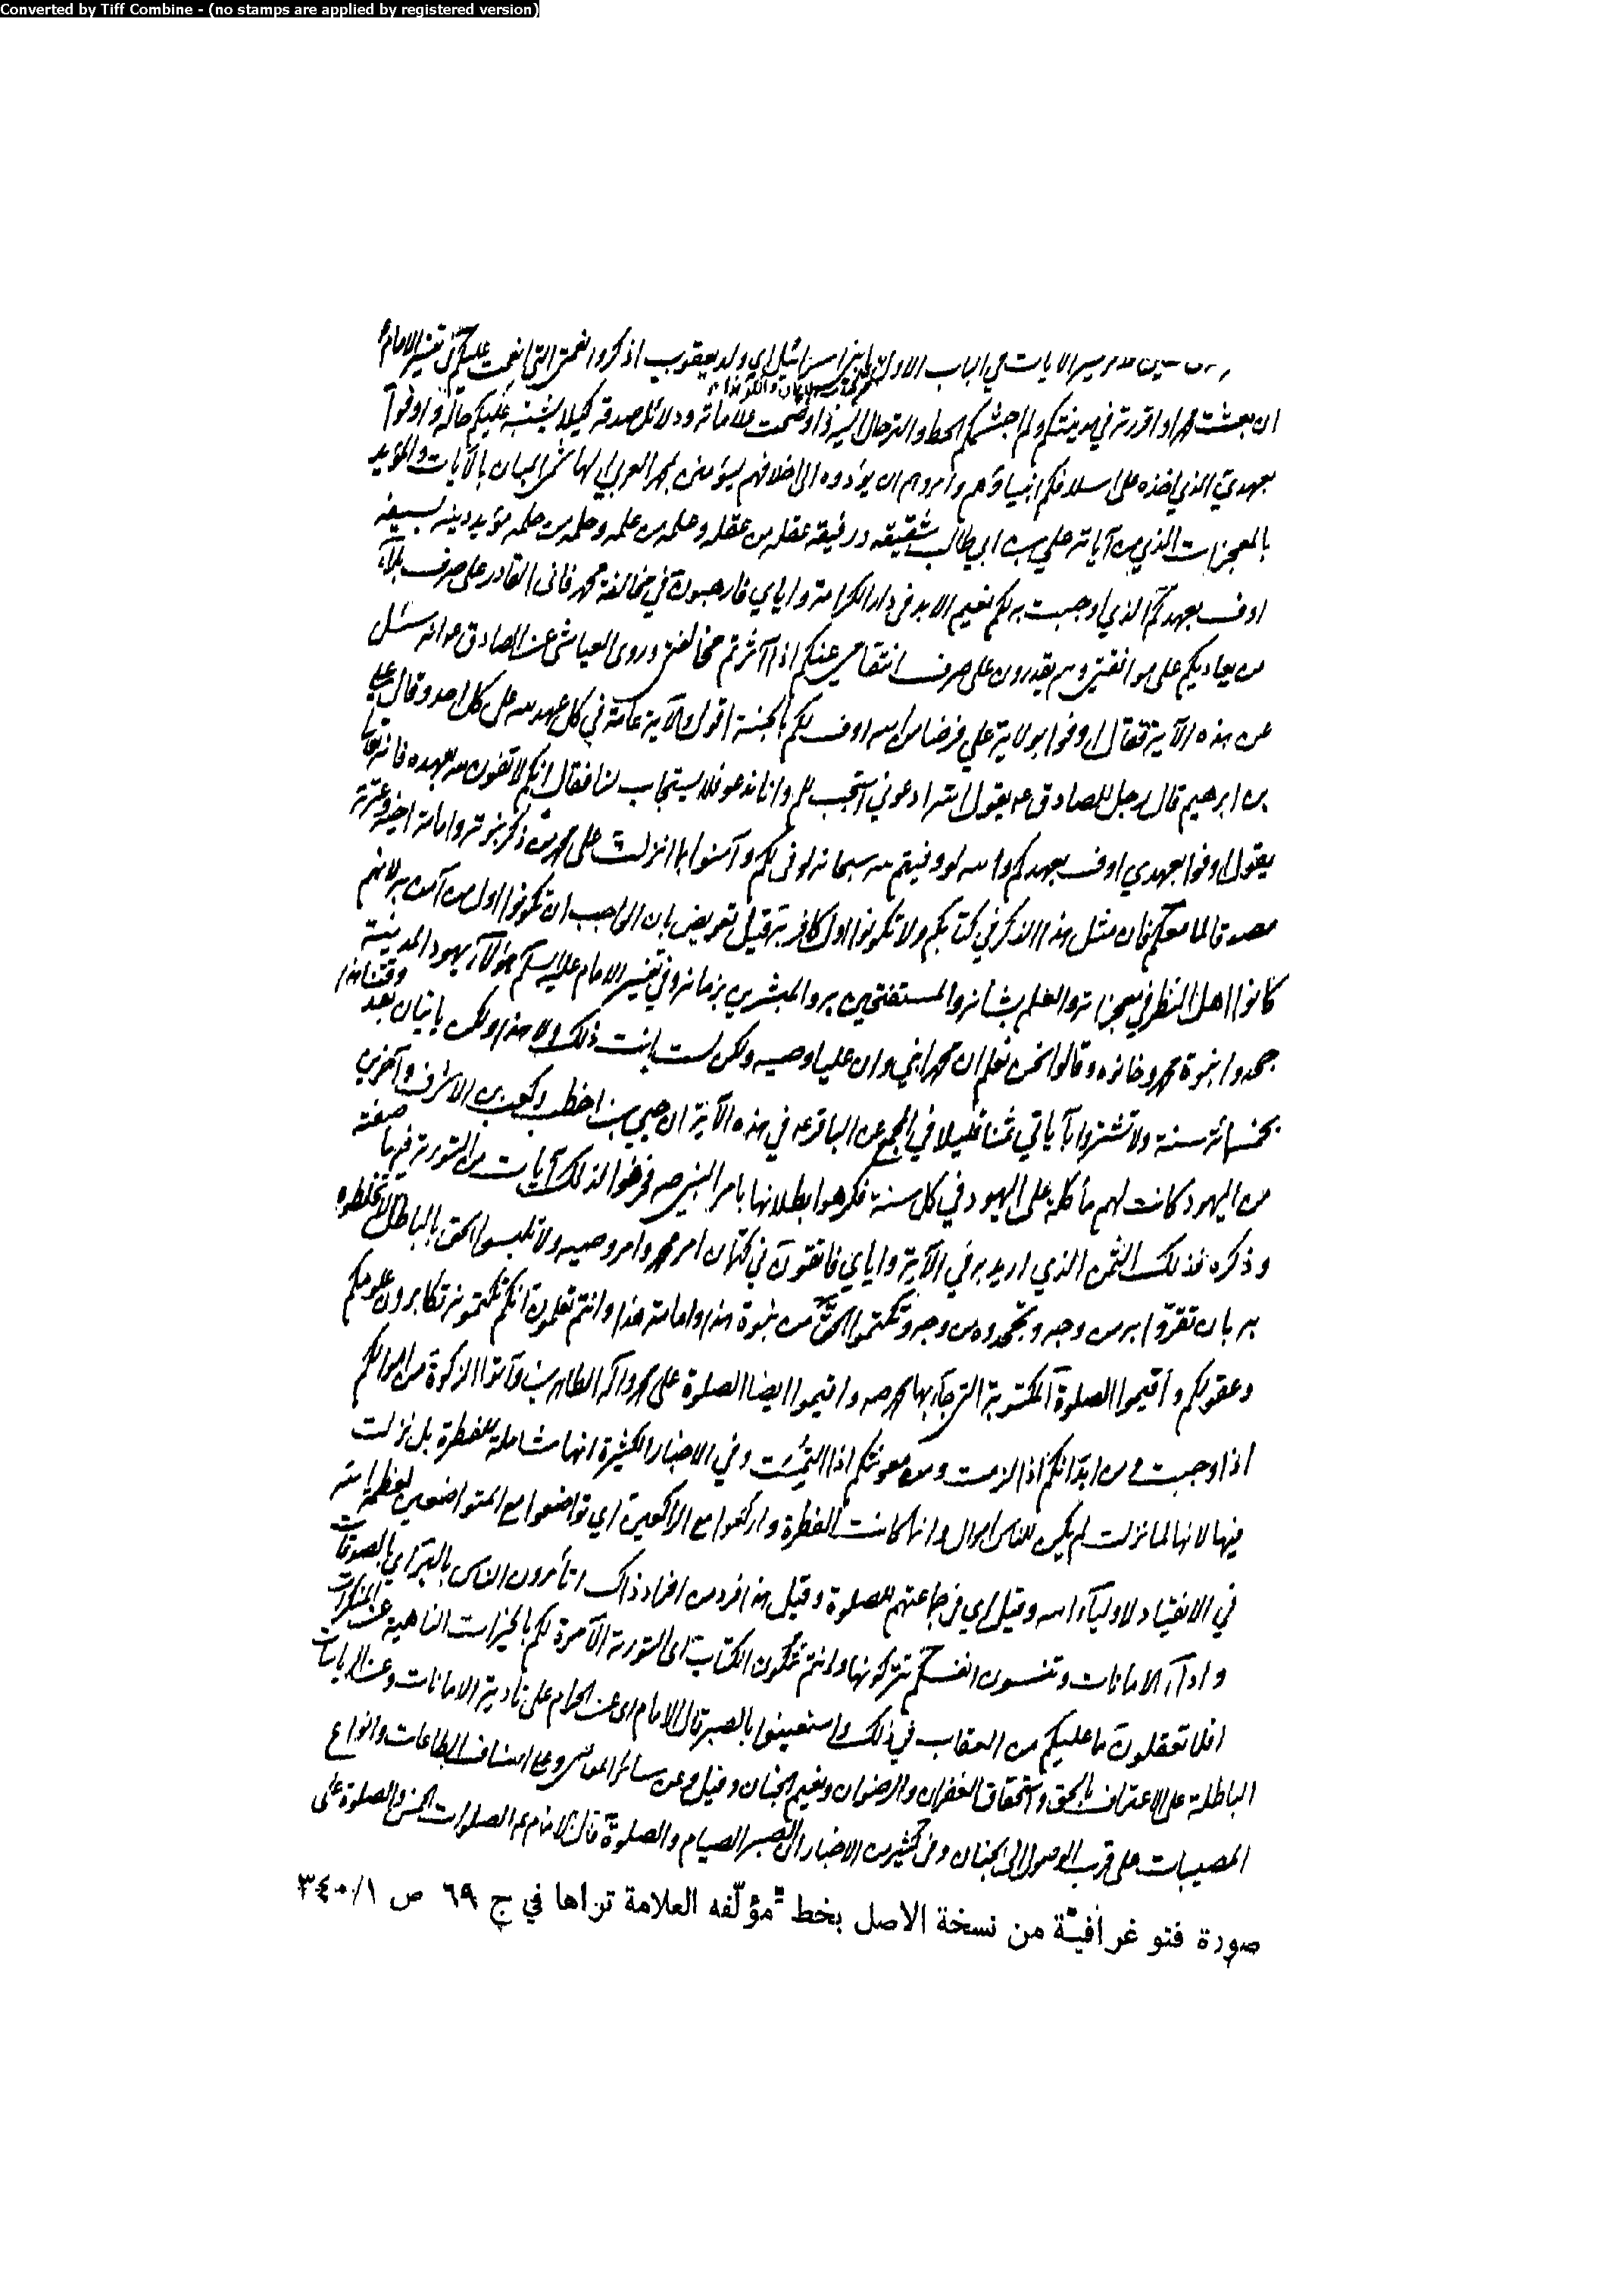 Converted by Tiff Combine - (no stamps are applied by registered version)
الايات في الباب الاول يا بني اسرائيل اي ولد يعقوب اذكروا نعمتي التي انعمت عليكم في تفسير الامام
ان بعثت محمدا واقررته في مدينتكم ولم اجشمكم الحط والترحال اليه واوضحت علاماته ودلائل صدقه كيلا يشتبه عليكم حاله واوفوا
بعهدي الذي اخذه على اسلافكم انبياؤهم وامروهم ان يؤدوه الى اخلافهم ليؤمنن بمحمد العربي الهاشمي المبان بالآيات والمؤيد
بالمعجزات الذي من آياته علي بن ابي طالب شقيقه ورفيقه عقله من عقله وعلمه من علمه وحلمه من حلمه مؤيد دينه بسيفه
اوف بعهدكم الذي اوجبت به لكم نعيم الابد في دار الكرامة واياي فارهبون في مخالفة محمد فاني القادر على صرف بلاء
من يعاديكم على موافقتي وهم لا يقدرون على صرف انتقامي عنكم اذا آثرتم مخالفتي وروى العياشي عن الصادق ع انه سئل
عن هذه الآية فقال اوفوا بولاية علي فرضا من الله اوف لكم بالجنة اقول والآية عامة في كل عهد لله على كل احد وقال علي
بن ابرهيم قال رجل للصادق ع يقول الله ادعوني استجب لكم وانا ندعو فلا يستجاب لنا فقال انكم لا تفون لله بعهده فانه تعالى
يقول اوفوا بعهدي اوف بعهدكم والله لو وفيتم لله سبحانه لوفى لكم وآمنوا بما انزلت على محمد من ذكر نبوته وامامة اخيه وعترته
مصدقا لما معكم فان مثل هذا الذكر في كتابكم ولا تكونوا اول كافر به قيل تعريض بان الواجب ان تكونوا اول من آمن به لانهم
كانوا اهل النظر في معجزاته والعلم بشانه والمستفتحين به والمبشرين بزمانه وفي تفسير الامام عليه السلام هؤلاء يهود المدينة
جحدوا نبوة محمد وخانوه وقالوا نحن نعلم ان محمدا نبي وان عليا وصيه ولكن لست انت ذلك ولا هذا ولكن ياتيان بعد وقتنا هذا
بخمسمائة سنة ولا تشتروا بآياتي ثمنا قليلا في المجمع عن الباقر ع في هذه الآية ان حيي بن اخطب وكعب بن الاشرف وآخرين
من اليهود كانت لهم مأكلة على اليهود في كل سنة فكرهوا بطلانها بامر النبي ص فحرفوا لذلك آيات من التورية فيها صفته
وذكره فذلك الثمن الذي اريد به في الآية واياي فاتقون في كتمان امر محمد وامر وصيه ولا تلبسوا الحق بالباطل لا تخلطوه
به بان تقروا به من وجه وتجحدوه من وجه وتكتموا الحق من نبوة هذا وامامة هذا وانتم تعلمون انكم تكتمونه تكابرون علومكم
وعقولكم واقيموا الصلوة المكتوبة التي جاء بها محمد ص واقيموا ايضا الصلوة على محمد وآله الطاهرين وآتوا الزكوة من اموالكم
اذا وجبت ومن ابدانكم اذا لزمت ومن معونتكم اذا التمست وفي الاخبار الكثيرة انها شاملة للفطرة بل نزلت
فيها لانها لما نزلت لم يكن للناس اموال وانما كانت الفطرة واركعوا مع الراكعين اي تواضعوا مع المتواضعين لعظمة الله
في الانقياد لاولياء الله وقيل اي في جماعتهم للصلوة وقيل هذا فرد من افراد ذاك أتأمرون الناس بالبر اي بالصدقات
واداء الامانات وتنسون انفسكم تتركونها وانتم تتلون الكتاب اي التورية الآمرة لكم بالخيرات الناهية عن المنكرات
افلا تعقلون ما عليكم من العقاب في ذلك واستعينوا بالصبر قال الامام اي عن الحرام على تأدية الامانات وعن الرياسات
الباطلة على الاعتراف بالحق واستحقاق الغفران والرضوان ونعيم الجنان وقيل وعن سائر المعاصي وعلى اصناف الطاعات وانواع
المصيبات على قرب الوصول الى الجنان وفي كثير من الاخبار ان الصبر الصيام والصلوة قال الامام ع الصلوات الخمس والصلوة على
صورة فتو غرافيّة من نسخة الاصل بخط مؤلّفه العلامة تراها في ج ٦٩ ص ٣٤٠/١